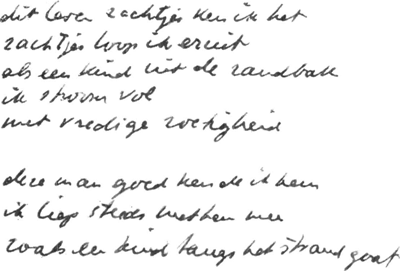 dit leven zachtjes ken ik het
zachtjes loop ik eruit
als een kind uit de zandbak
ik stroom vol
met vredige zoetigheid
deze man goed kende ik hem
ik liep steeds met hem mee
zoals een kind langs het strand gaat